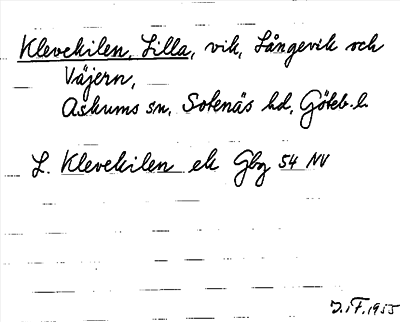 Klevekilen, Lilla, vik, Långevik och
Väjern,
Askums sn, Sotenäs hd, Göteb. l.
L. Klevekilen ek Gbg 54 NV
J.iF. 1955